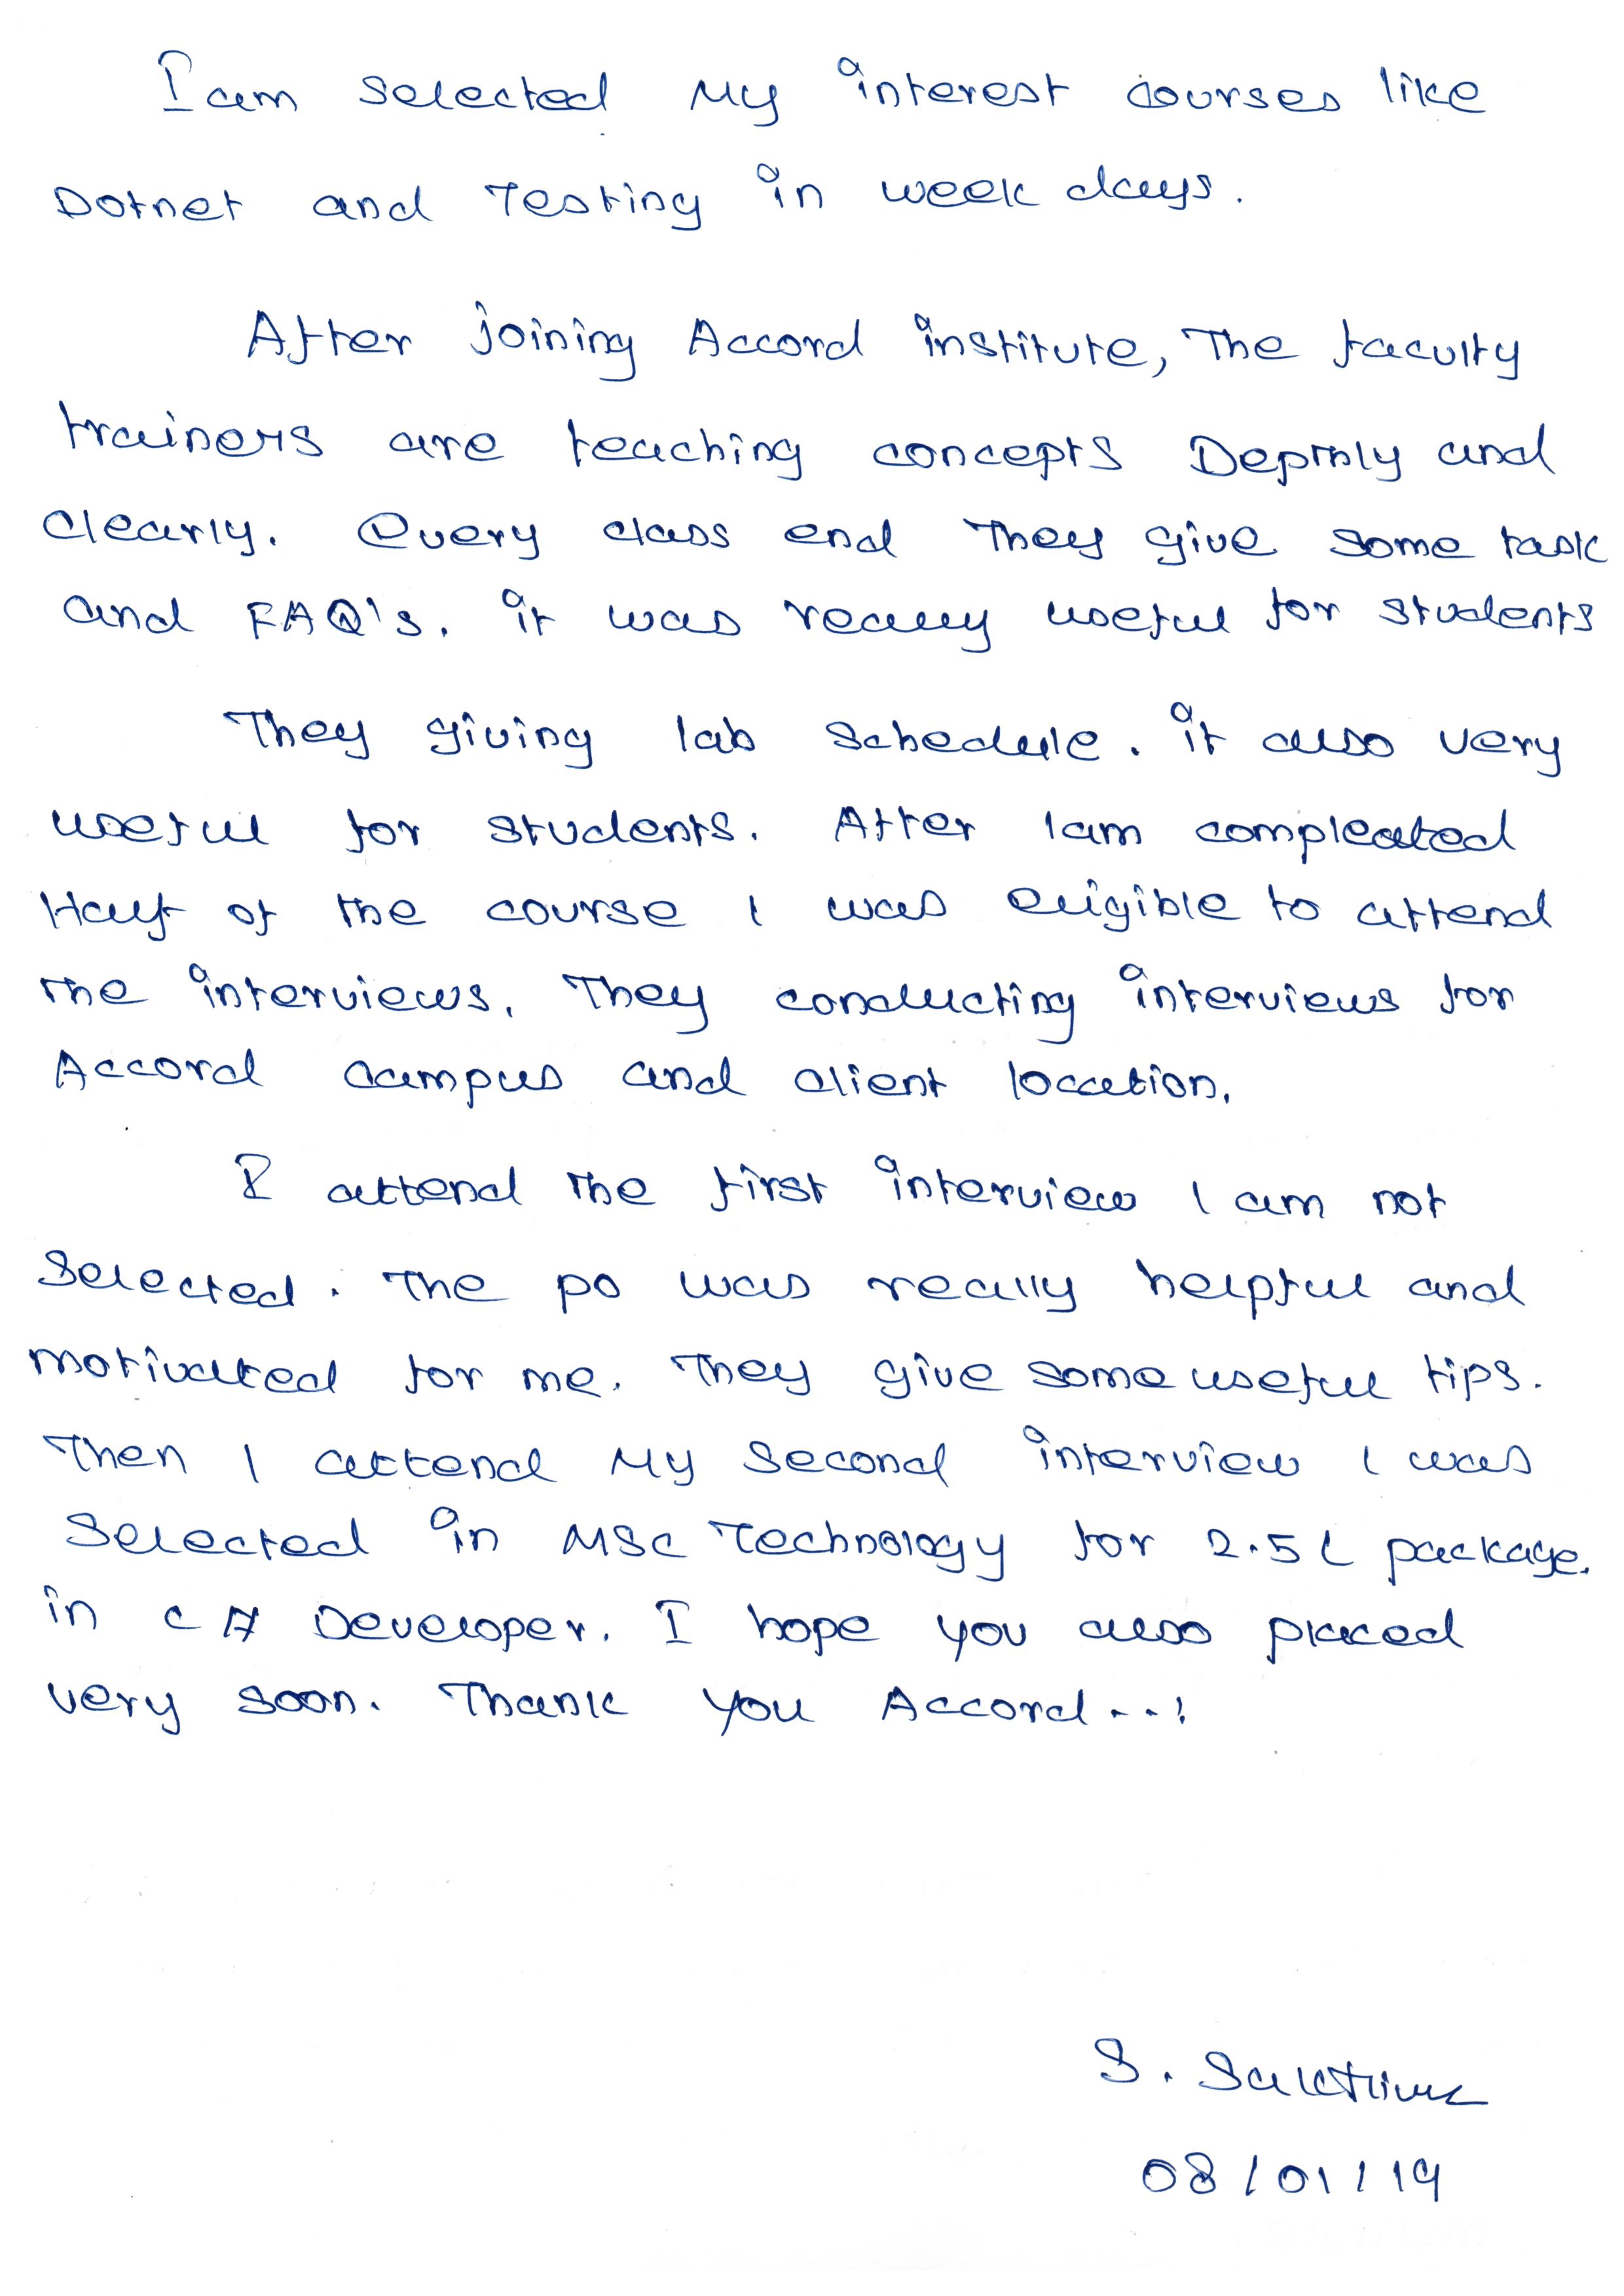 I am selected my interest courses like
Dotnet and Testing in week days.
After joining Accord institute, The faculty
trainers are teaching concepts Depthly and
clearly. Every class end They give some task
and FAQ's. it was really useful for students
They giving lab schedule. it also very
useful for students. After I am compleated
Half of the course I was eligible to attend
the interviews. They conducting interviews for
Accord campus and client location.
I attend the first interview I am not
selected. The po was really helpful and
motivated for me. They give some useful tips.
Then I attend my second interview I was
selected in MSC Technology for 2.5 L package.
in C# Developer. I hope you also placed
very soon. Thank you Accord..!
S.
08/01/19